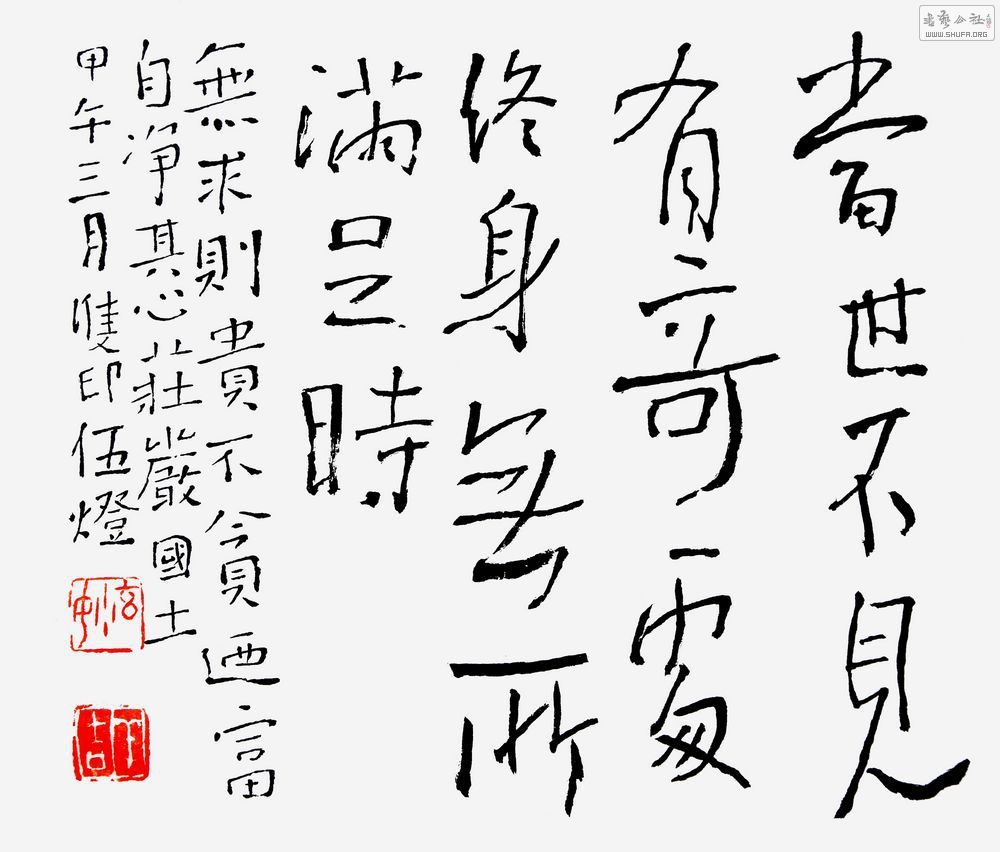 當世不見
有奇處
終身無所
滿足時
無求則貴不貪迺富
自淨其心莊嚴國土
甲午三月雙印伍燈
書藝公社
WWW.SHUFA.ORG